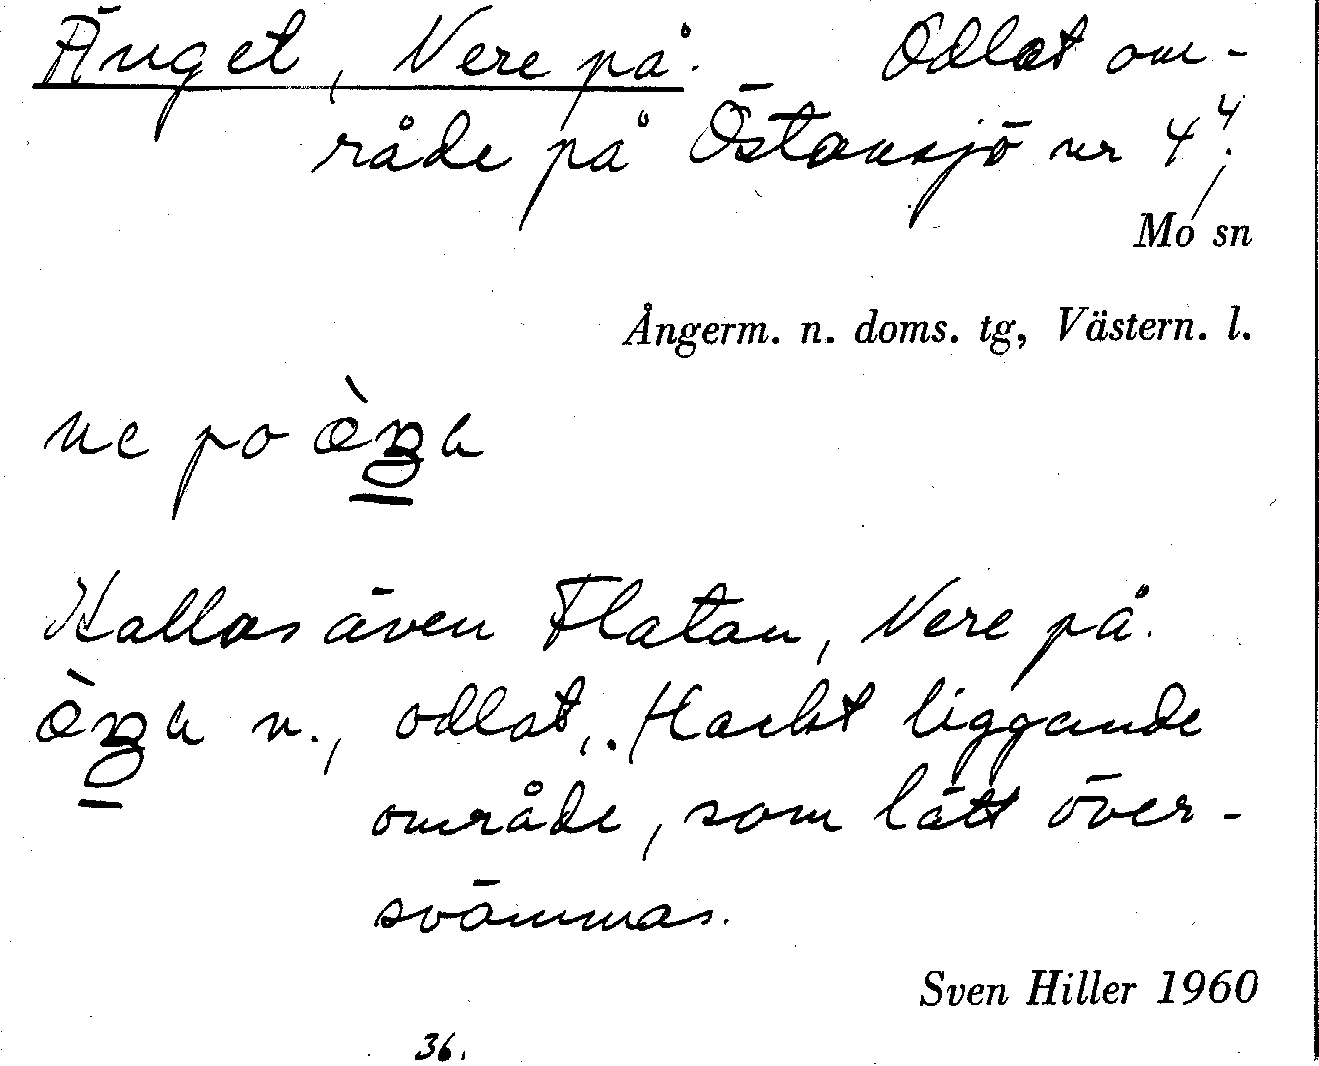 Änget, Nere på. Odlat om-
råde på Östansjö nr 4⁴.
Mo sn
Ångerm. n. doms. tg, Västern. l.
ne po
Kallas även Flatan, Nere på.
n., odlat, . Flackt liggande
område, som lätt över-
svämmas.
Sven Hiller 1960
36.